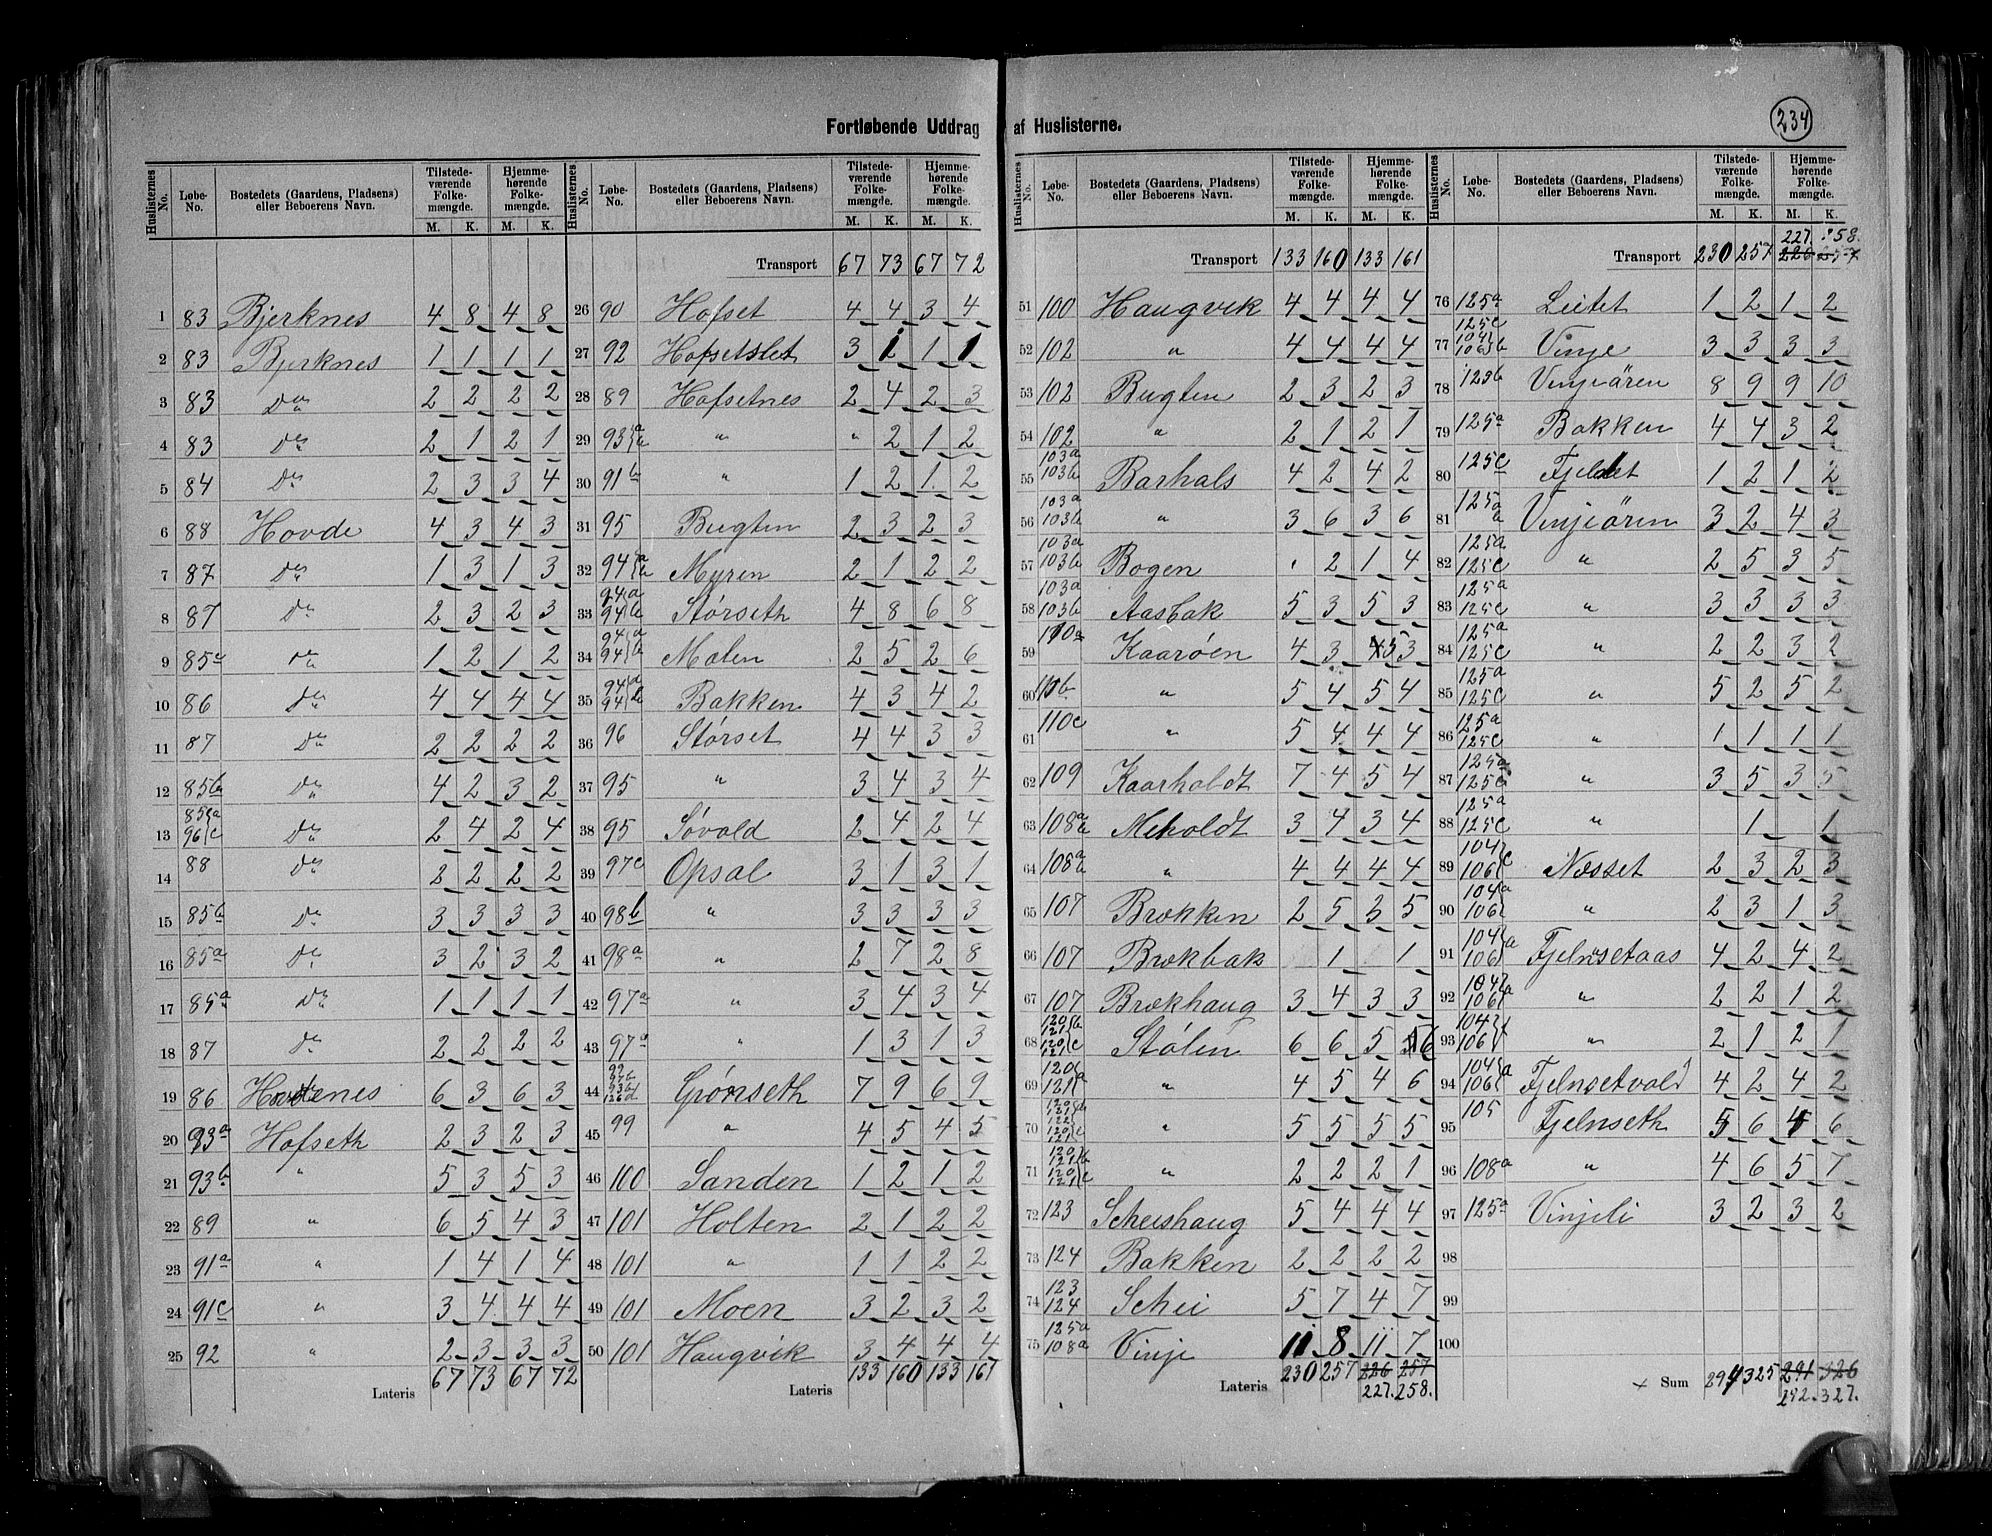 Fortløbende Uddrag af Huslisterne.
234
Huslisternes No. Løbe-No. Bostedets (Gaardens, Pladsens) eller Beboerens Navn. Tilstedeværende Folkemængde. M. K. Hjemmehørende Folkemængde. M. K.
1 83 Bjerknes 4 8 4 8
2 83 Bjerknes 1 1 1 1
3 83 Do 2 2 2 2
4 83 Do 2 1 2 1
5 84 Do 2 3 3 4
6 88 Hovde 4 3 4 3
7 87 Do 1 3 1 3
8 87 Do 2 3 2 3
9 85c Do 1 2 1 2
10 86 Do 4 4 4 4
11 87 Do 2 2 2 2
12 85b Do 4 2 3 2
13 85a 96c Do 2 4 2 4
14 88 Do 2 2 2 2
15 85b Do 3 3 3 3
16 85a Do 3 2 3 2
17 85a Do 1 1 1 1
18 87 Do 2 2 2 2
19 86 6 3 6 3
20 93a Hofseth 2 3 2 3
21 93b " 5 3 5 3
22 89 " 6 5 4 3
23 91a " 1 4 1 4
24 91c " 3 4 4 4
25 92 " 2 3 3 3
Lateris 67 73 67 72
Huslisternes No. Løbe-No. Bostedets (Gaardens, Pladsens) eller Beboerens Navn. Tilstedeværende Folkemængde. M. K. Hjemmehørende Folkemængde. M. K.
Transport 67 73 67 72
26 90 Hofset 4 4 3 4
27 92 Hofsetslet 3 1 1 1
28 89 Hofsetnes 2 4 2 3
29 93a b " " 2 1 2
30 91b " 1 2 1 2
31 95 Bugten 2 3 2 3
32 94a b Myren 2 1 2 2
33 94a 94b Størseth 4 8 6 8
34 94a 94b Molen 2 5 2 6
35 94a 94b Bakken 4 3 4 2
36 96 Størset 4 4 3 3
37 95 " 3 4 3 4
38 95 Søvold 2 4 2 4
39 97c Opsal 3 1 3 1
40 98b " 3 3 3 3
41 98a " 2 7 2 8
42 97a " 3 4 3 4
43 97a " 1 3 1 3
44 Grønseth 7 9 6 9
45 99 " 4 5 4 5
46 100 Sanden 1 2 1 2
47 101 Holten 2 1 2 2
48 101 " 1 1 2 2
49 101 Moen 3 2 3 2
50 101 Haugvik 3 4 4 4
Lateris 133 160 133 161
Huslisternes No. Løbe-No. Bostedets (Gaardens, Pladsens) eller Beboerens Navn. Tilstedeværende Folkemængde. M. K. Hjemmehørende Folkemængde. M. K.
Transport 133 160 133 161
51 100 Haugvik 4 4 4 4
52 102 " 4 4 4 4
53 102 Bugten 2 3 2 3
54 102 " 2 1 2 1
55 103a 103b Barhals 4 2 4 2
56 103a 103b " 3 6 3 6
57 103a 103b Bogen . 2 1 4
58 103a 103b Aasbak 5 3 5 3
59 110a Kaarøen 4 3 5 3
60 110b " 5 4 5 4
61 110c " 5 4 4 4
62 109 Kaarholdt 7 4 5 4
63 108a b Meholdt 3 4 3 4
64 108a b " 4 4 4 4
65 107 Brækken 2 5 3 5
66 107 Brækbak 1 1
67 107 Brækhaug 3 4 3 3
68 120b 121 120c 121 Stølen 6 6 5 6
69 120a 121 " 4 5 4 6
70 " 5 5 5 5
71 120b 121 120c 121 " 2 2 2 1
72 123 Scheishaug 5 4 4 4
73 124 Bakken 2 2 2 2
74 123 124 Schei 5 7 4 7
75 125a 108a Vinje 11 8 11 7
Lateris 230 257 226 257
227. 258.
Huslisternes No. Løbe-No. Bostedets (Gaardens, Pladsens) eller Beboerens Navn. Tilstedeværende Folkemængde. M. K. Hjemmehørende Folkemængde. M. K.
227. 258.
Transport 230 257 226 257
76 125a Lietet 1 2 1 2
77 125c 104 106b Vinje 3 3 3 3
78 123b Vinjeören 8 9 9 10
79 125a Bakken 4 4 3 2
80 125c Fjeldet 1 2 1 2
81 125a b Vinjeören 3 2 4 3
82 125a 125c " 2 5 3 5
83 125a 125c " 3 3 3 3
84 125a 125c " 2 2 3 2
85 125a 125c " 5 2 5 2
86 125a 125c " 1 1 1 1
87 125a 125c " 3 5 3 5
88 125a 125c " 1 1
89 104 106c Næsset 2 3 2 3
90 104a 106 " 2 3 1 3
91 104 106a Fjelnsetaas 4 2 4 2
92 104 106a " 2 2 1 2
93 104 106 " 2 1 2 1
94 104 106a Fjelnsetvold 4 2 4 2
95 105 Fjelnseth 5 6 4 6
96 108a " 4 6 5 7
97 125a Vinjeli 3 2 3 2
98
99
100
Sum 294 325 291 326
292. 327.